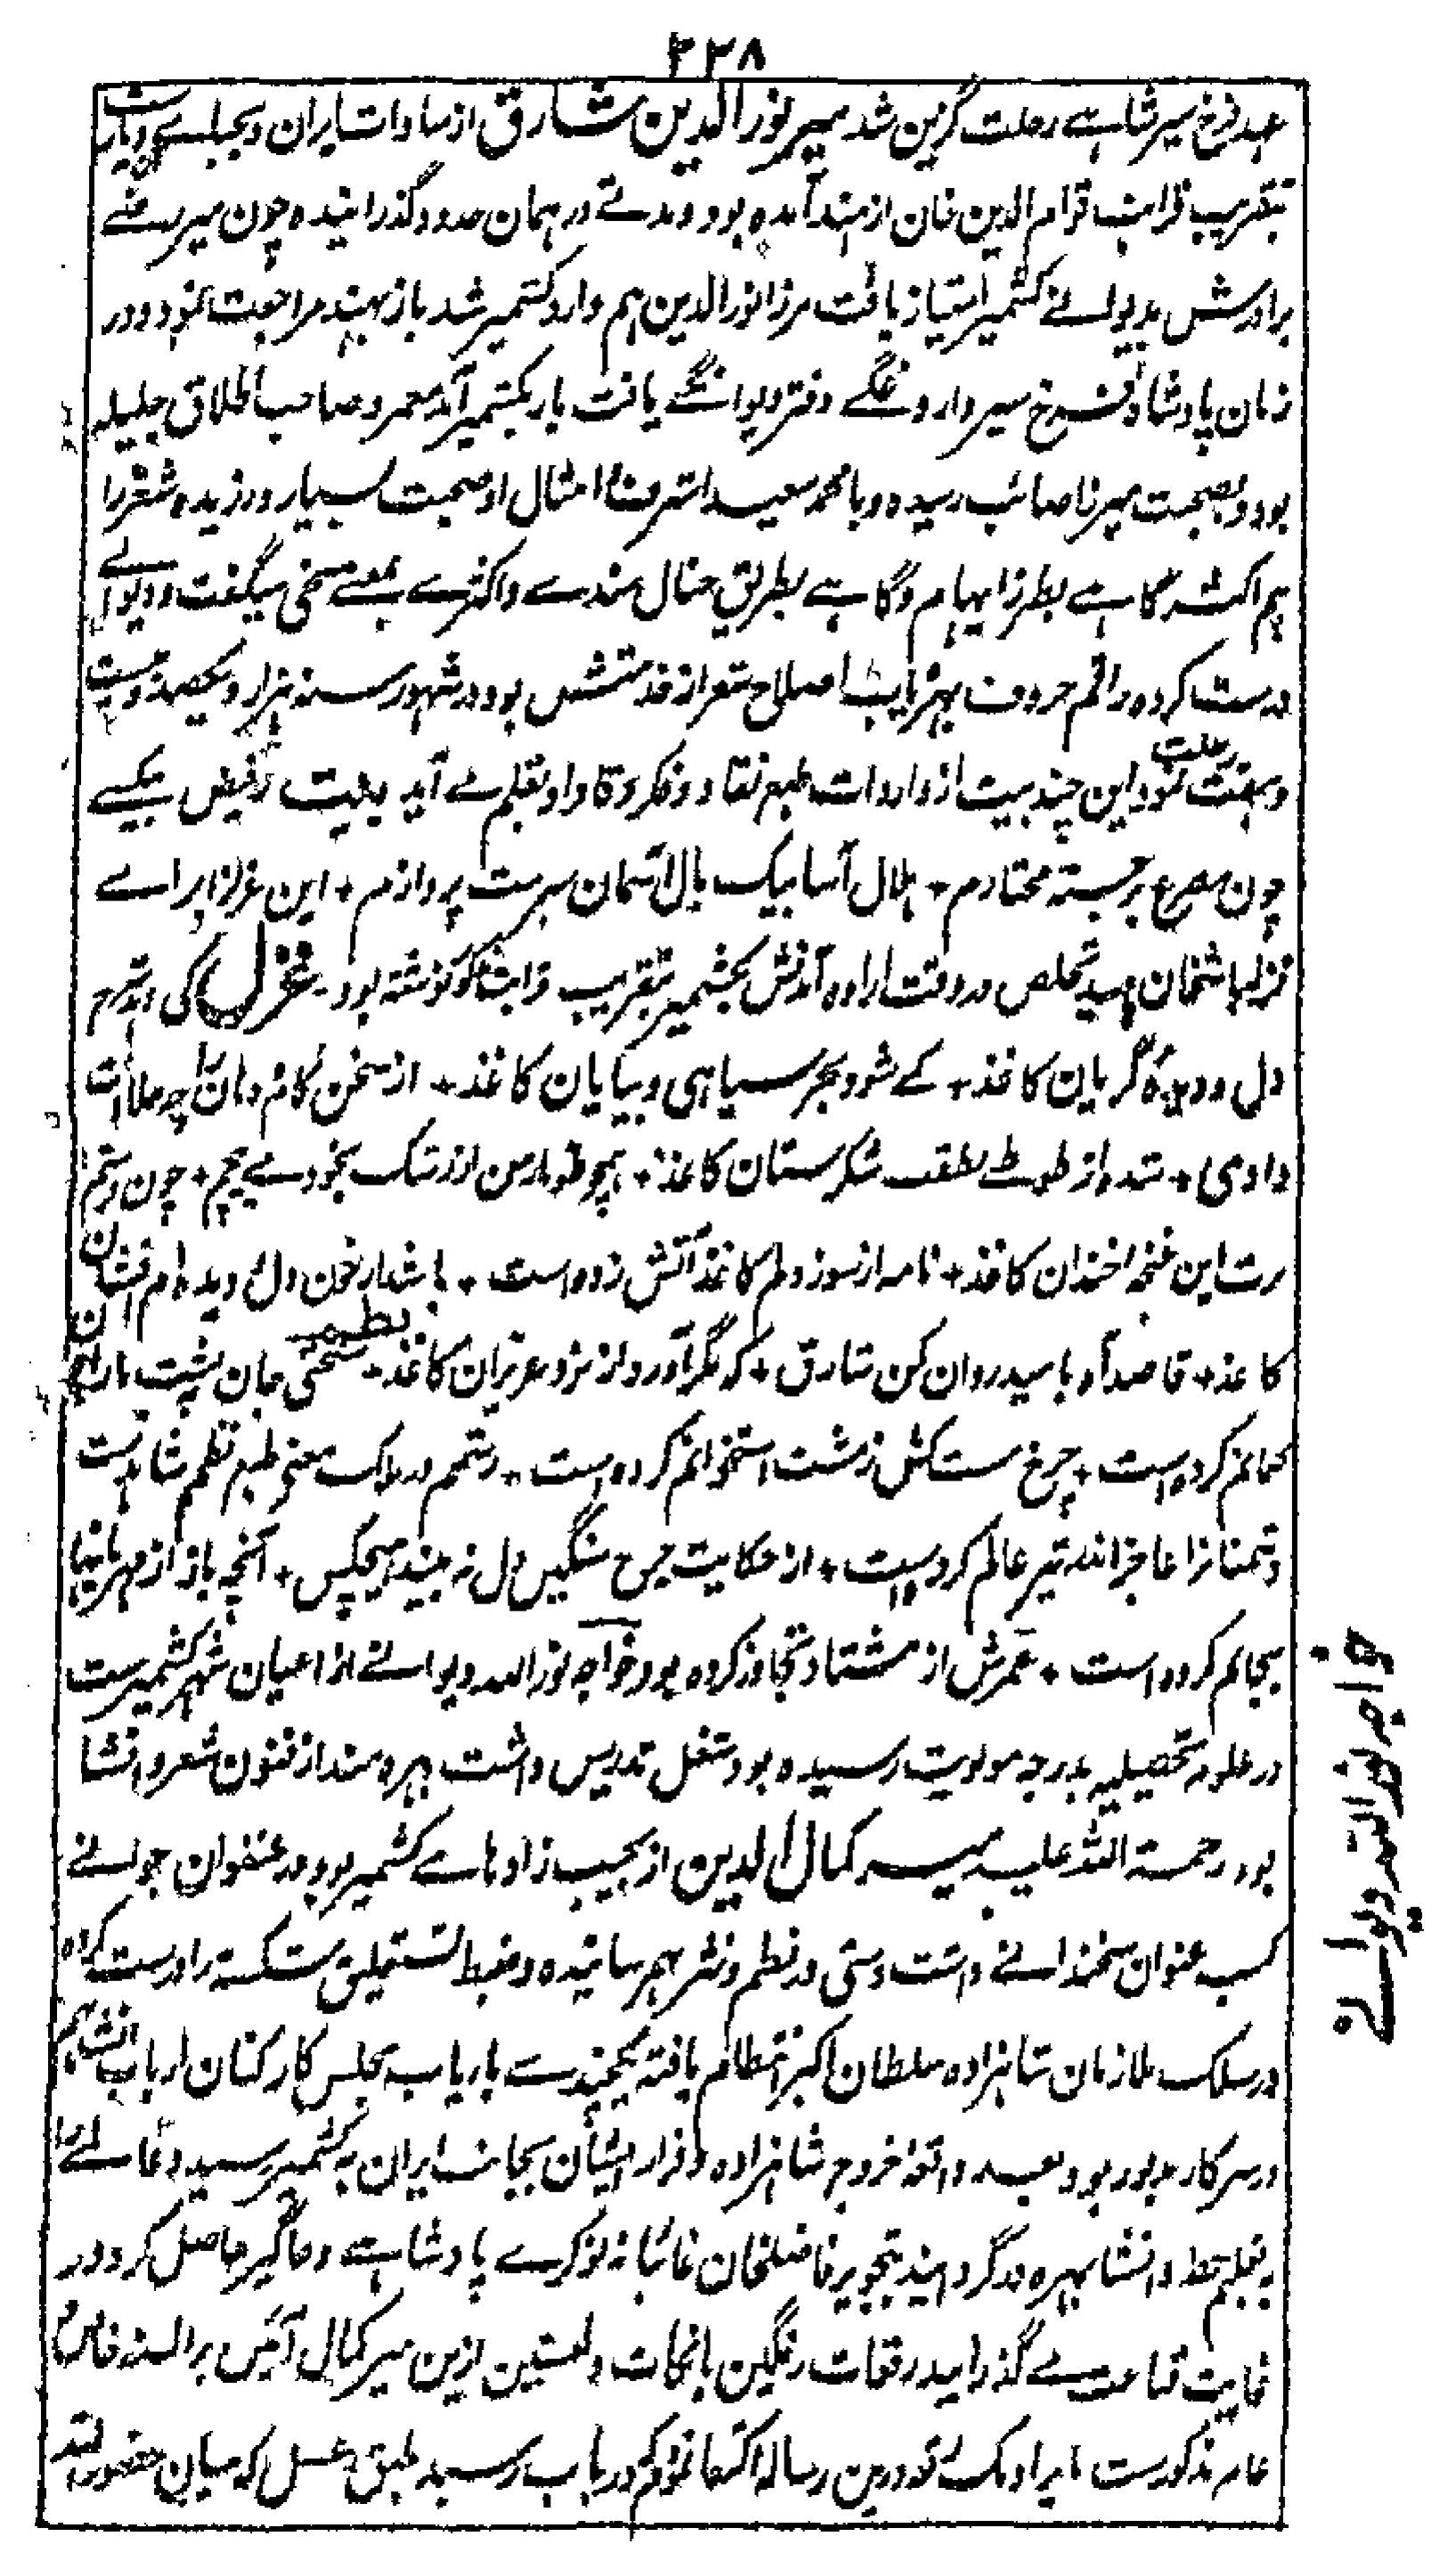 ۲۲۸
عهد فرخ سیر شاهی رحلت گزین شد میر نور الدین شارق از سادات ایران و
بتقریب قرابت قوام الدین خان از هند آمده بود و مدتے در همان حدود گذرانیده چون میر
برادرش بدیوانے کشمیر امتیاز یافت مرزا نور الدین هم وارد کشمیر شد باز بهند مراجعت نمود و در
زمان پادشاه فرخ سیر داروغگے دفتر دیوانگے یافت باز بکشمیر آمد معمر و صاحب اخلاق جلیله
بود و بصحبت میرزا صائب رسیده و با محمد سعید اشرف و امثال او صحبت بسیار ورزیده شعر را
هم اکثر گاہے بطرز ایهام و گاہے بطریق خیال بندے و اکثرے سخن میگفت و دیوانے
درست کرده راقم حروف اصلاح شعر از خدمتش بود در شهور سنه هزار و یکصد و بیست
و هفت رحلت نمود این چند بیت از واردات طبع نقاد و فکر وقاد او بقلم مے آید بیت
چون مصرع برجسته مختارم + هلال آسا بیک بال آسمان پروازم + این غزل را براے
قزلباشخان امید تخلص در وقت اراده آمدنش بکشمیر بتقریب نوشته بود - غزل کی
دل و دیده گریان کاغذ + کے شود بحر سیاهی و بیابان کاغذ + از سخن کام و دهان را چه حلاوت
دادی + شد از طوطے نطقت شکرستان کاغذ + همچو طومار من از رشک بخود مے پیچم + چون
این غنچه خندان کاغذ + نامه از سوز دلم کاغذ آتش زده است + باشد از خون دل و دیده ام افشان
کاغذ + قاصد آه بامید روان کن شارق + که مگر آورد از نزد عزیزان کاغذ - نظم سختی جان پشت
کمانم کرده است + چرخ مشت استخوانم کرده است + رستمم در ملک معنی طبع نظمم شاهد است
دشمنانرا عاجز الله تیر عالم کرده است + از حکایت چرخ سنگین دل نه بیند هیچکس + آنچه باز از مهربانیها
بجانم کرده است + عمرش از هشتاد تجاوز کرده بود خواجه نور الله دیوانے از اعیان شهر کشمیرست
در علوم تحصیلیه بدرجه مولویت رسیده بود شغل تدریس داشت بهره مند از فنون شعر و انشا
بود رحمة الله علیه میر کمال الدین از نجیب زاده هاے کشمیر بود در عنفوان جوانے
کسب عنوان سخندانے داشت دستی در نظم و نثر بهم رسانیده و خبط نستعلیق شکسته را درست کرده
در سلک ملازمان شاهزاده سلطان اکبر انتظام یافته یکچندے باریاب مجلس کارکنان ارباب انشا هم
در سرکار مزبور بود بعد واقعه خروج شاهزاده و فرار ایشان بجانب ایران به کشمیر رسید
به تعلیم خط و انشا بهره ور گردانید بتجویز فاضلخان غائبانه نوکرے پادشاهے و جاگیر حاصل کرد و در
غایت قناعت مے گذرانید رقعات رنگین با نکات دلنشین ازین میر کمال آئین بر السنه خاص و
عام مذکورست ایراد یک رقعه درین رساله اکتفا نمودم در باب رسید طبق عسل که میان حضور الله
خواجه نور الله دیوانے